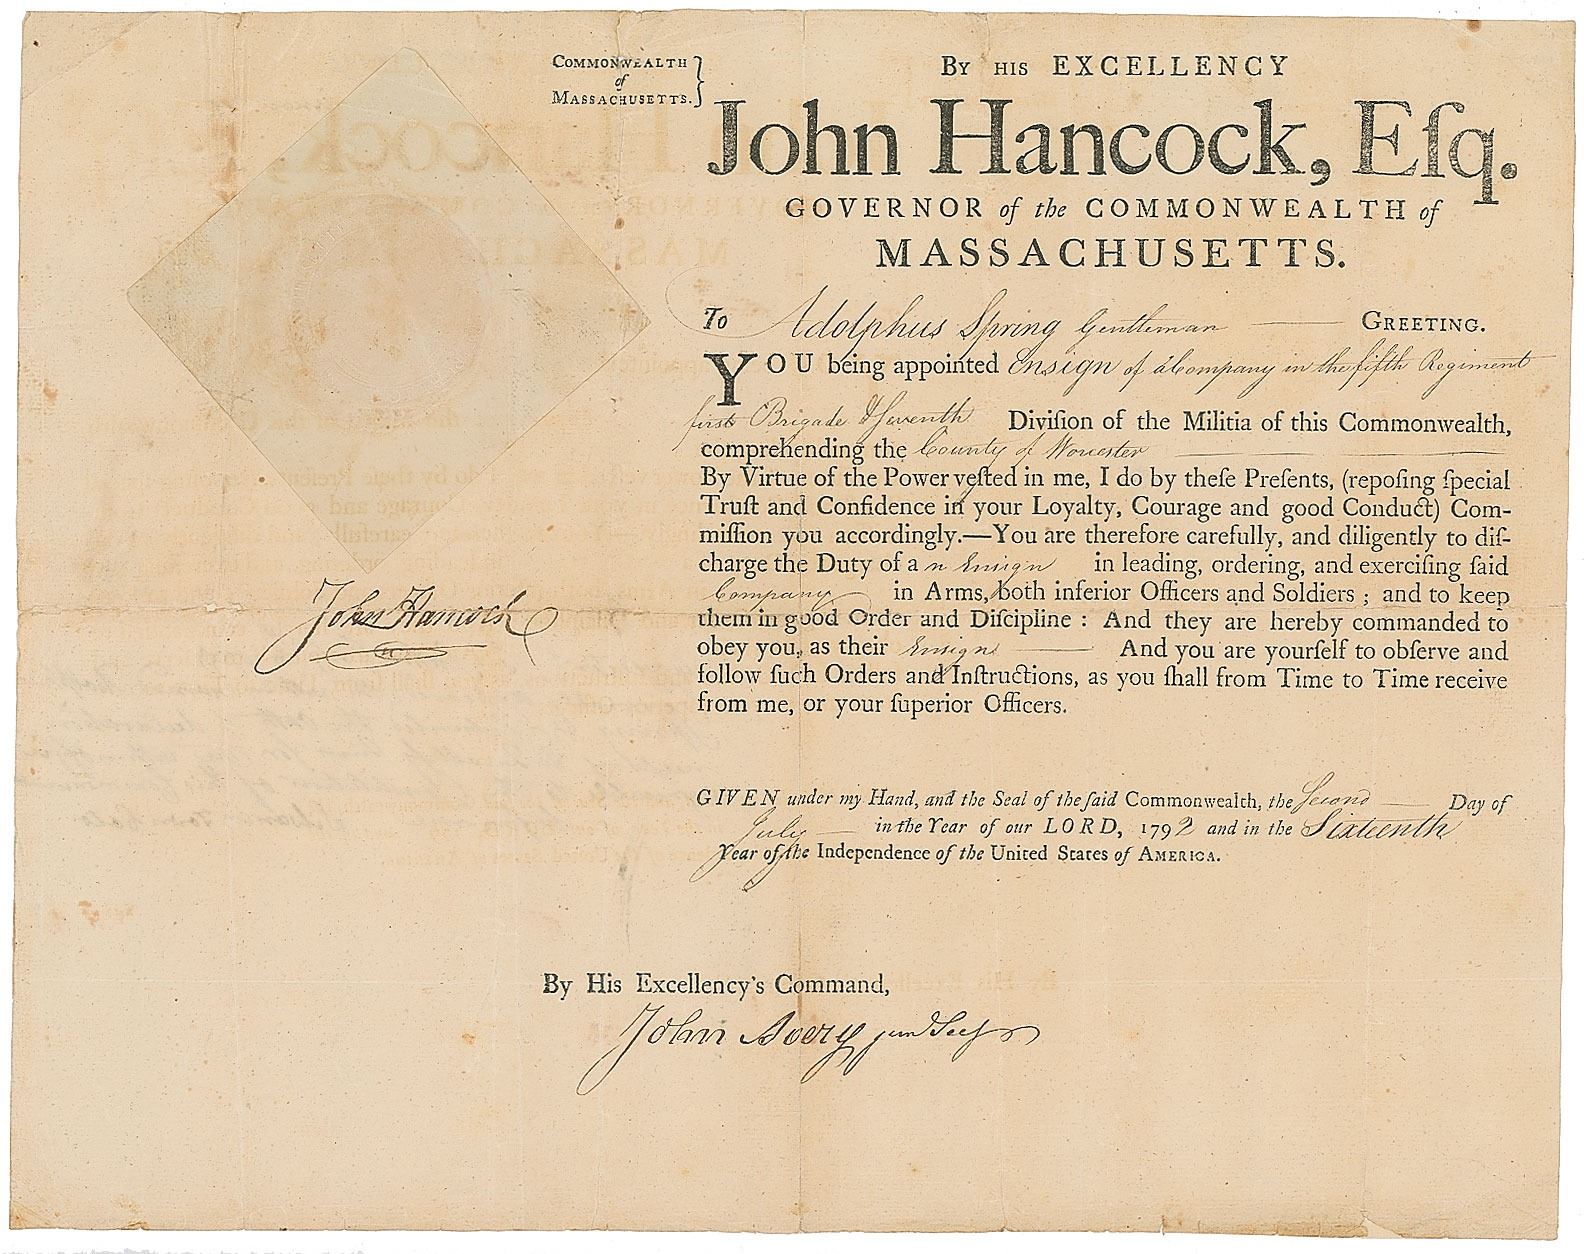 COMMONWEALTH
of
MASSACHUSETTS. }
BY HIS EXCELLENCY
John Hancock, Eſq.
GOVERNOR of the COMMONWEALTH of
MASSACHUSETTS.
To Adolphus Spring Gentleman GREETING.
YOU being appointed Ensign of a Company in the fifth Regiment
first Brigade & Seventh Diviſion of the Militia of this Commonwealth,
comprehending the County of Worcester
By Virtue of the Power veſted in me, I do by theſe Preſents, (repoſing ſpecial
Truſt and Confidence in your Loyalty, Courage and good Conduct) Com-
miſſion you accordingly.—You are therefore carefully, and diligently to diſ-
charge the Duty of a n Ensign in leading, ordering, and exerciſing ſaid
Company in Arms, both inferior Officers and Soldiers ; and to keep
them in good Order and Diſcipline : And they are hereby commanded to
obey you, as their Ensign And you are yourſelf to obſerve and
follow ſuch Orders and Inſtructions, as you ſhall from Time to Time receive
from me, or your ſuperior Officers.
John Hancock
GIVEN under my Hand, and the Seal of the ſaid Commonwealth, the Second Day of
July in the Year of our LORD, 1792 and in the Sixteenth
Year of the Independence of the United States of AMERICA.
By His Excellency's Command,
John Avery jun Secy